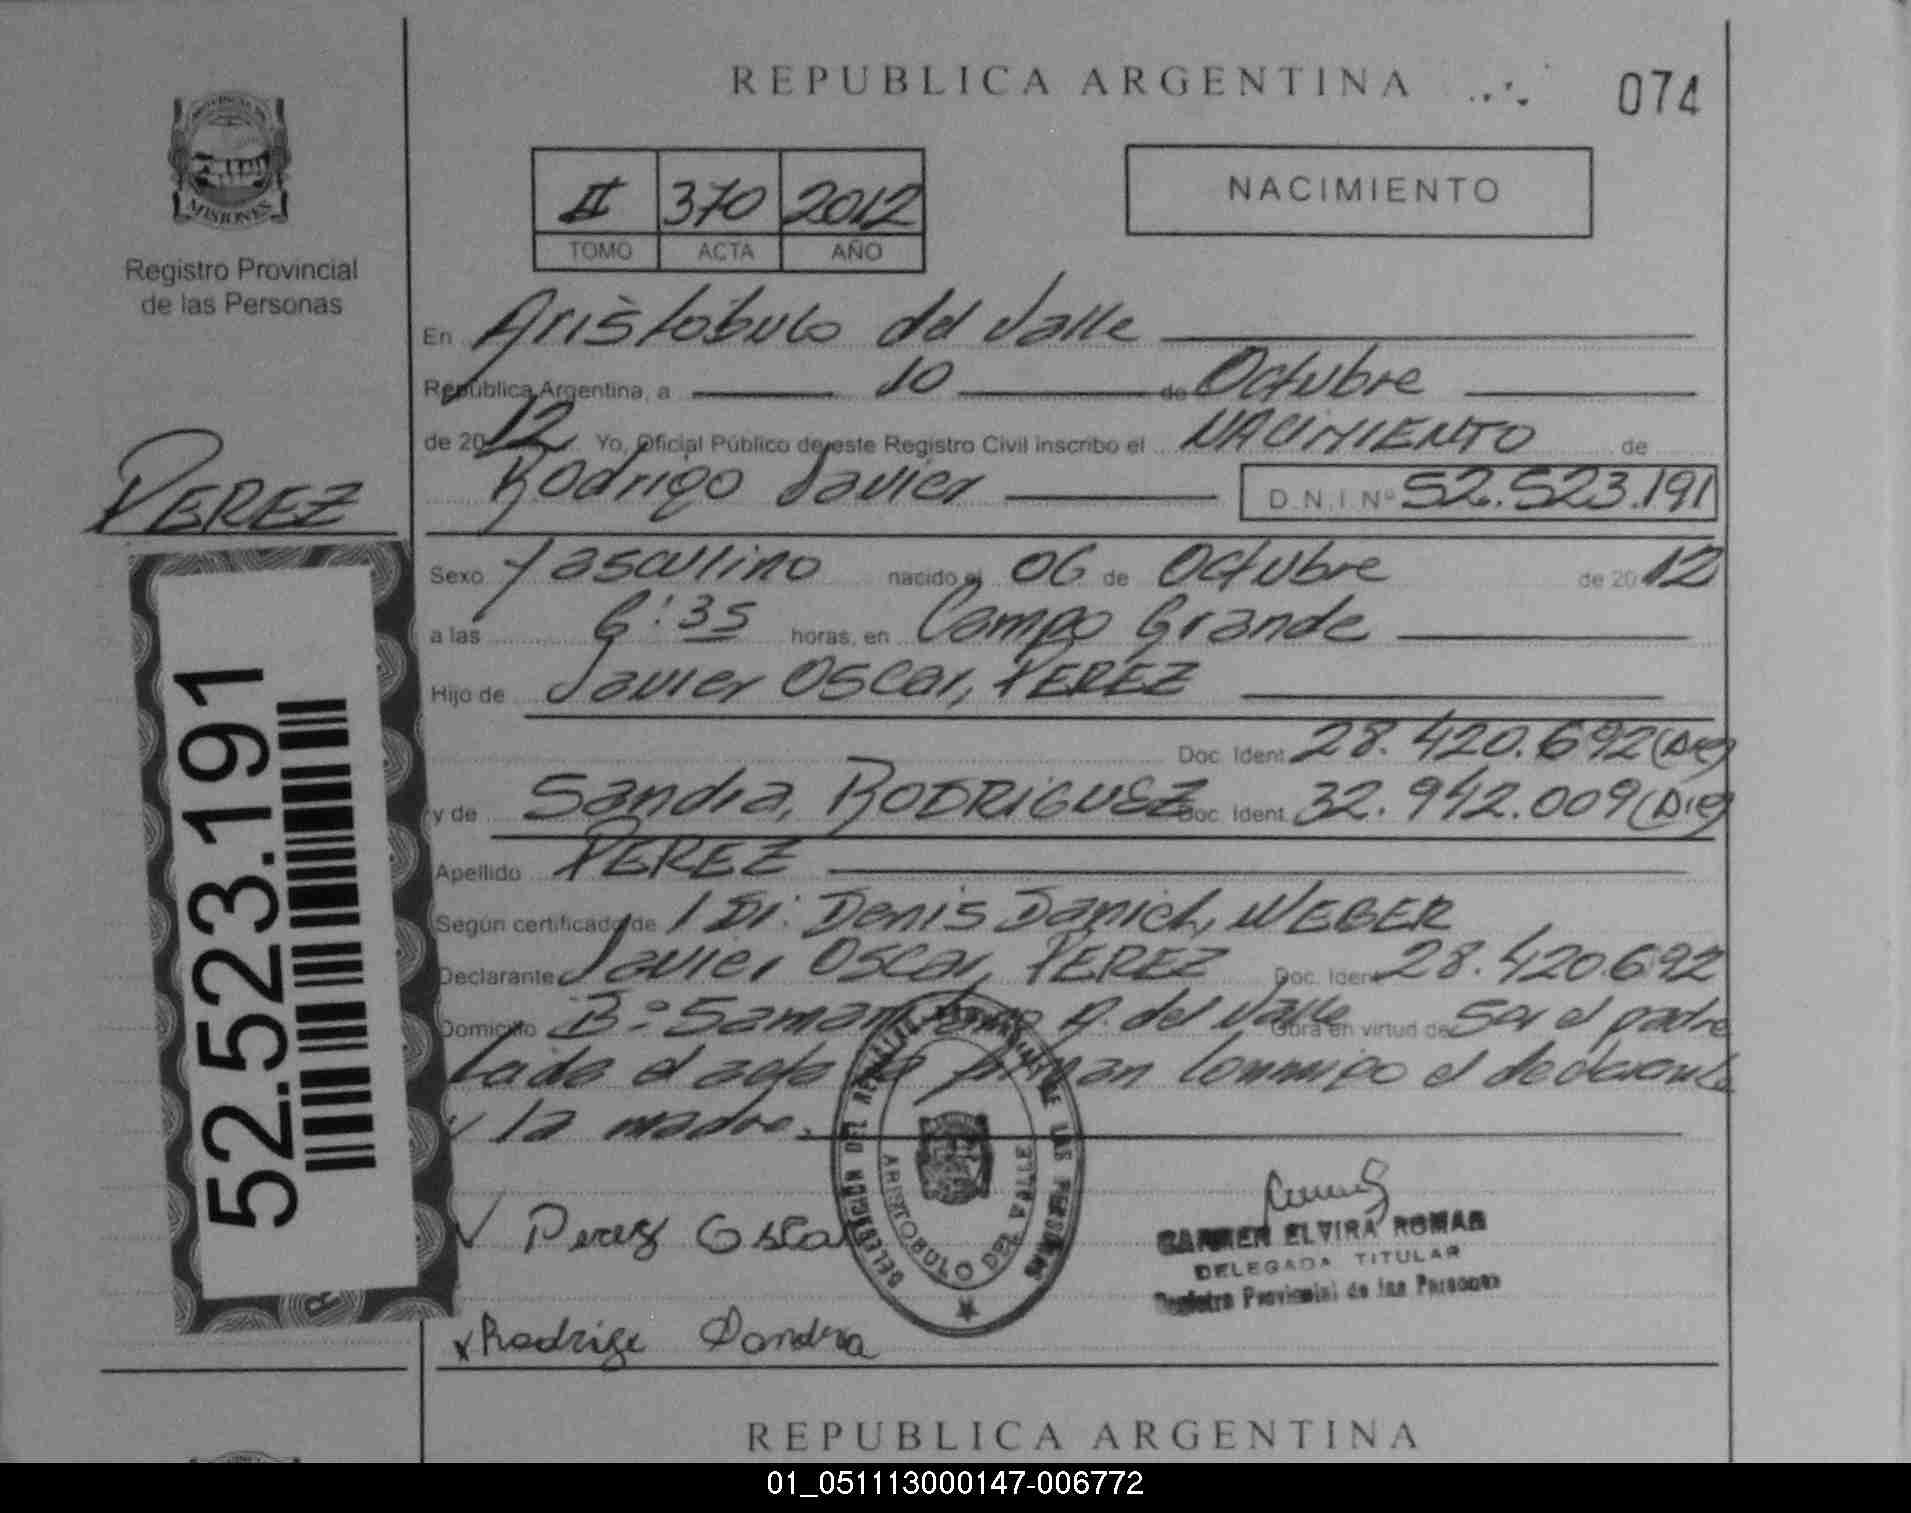 REPUBLICA ARGENTINA
074
MISIONES
Registro Provincial
de las Personas
II 370 2012
TOMO ACTA AÑO
NACIMIENTO
En Aristóbulo del Valle
República Argentina, a 10 de Octubre
de 2012 Yo, Oficial Público de este Registro Civil inscribo el NACIMIENTO de
Rodrigo Javier D.N.I Nº 52.523.191
PEREZ
52.523.191
Sexo Masculino nacido el 06 de Octubre de 2012
a las 6:35 horas, en Campo Grande
Hijo de Javier Oscar, PEREZ
Doc. Ident. 28.420.692
y de Sandra, RODRIGUEZ Doc. Ident. 32.942.009
Apellido PEREZ
Según certificado de / Dr: Denis Daniel, WEBER
Declarante Javier Oscar, PEREZ Doc. Ident. 28.420.692
Domicilio Bº A. del Valle Obra en virtud de Ser el padre
Leida el acta la firman conmigo el declarante
y la madre.
DELEGACION DEL REGISTRO DE LAS PERSONAS
ARISTOBULO DEL VALLE
Perez Oscar
CARMEN ELVIRA ROMAN
DELEGADA TITULAR
Registro Provincial de las Personas
x Rodrige Sandra
REPUBLICA ARGENTINA
01_051113000147-006772